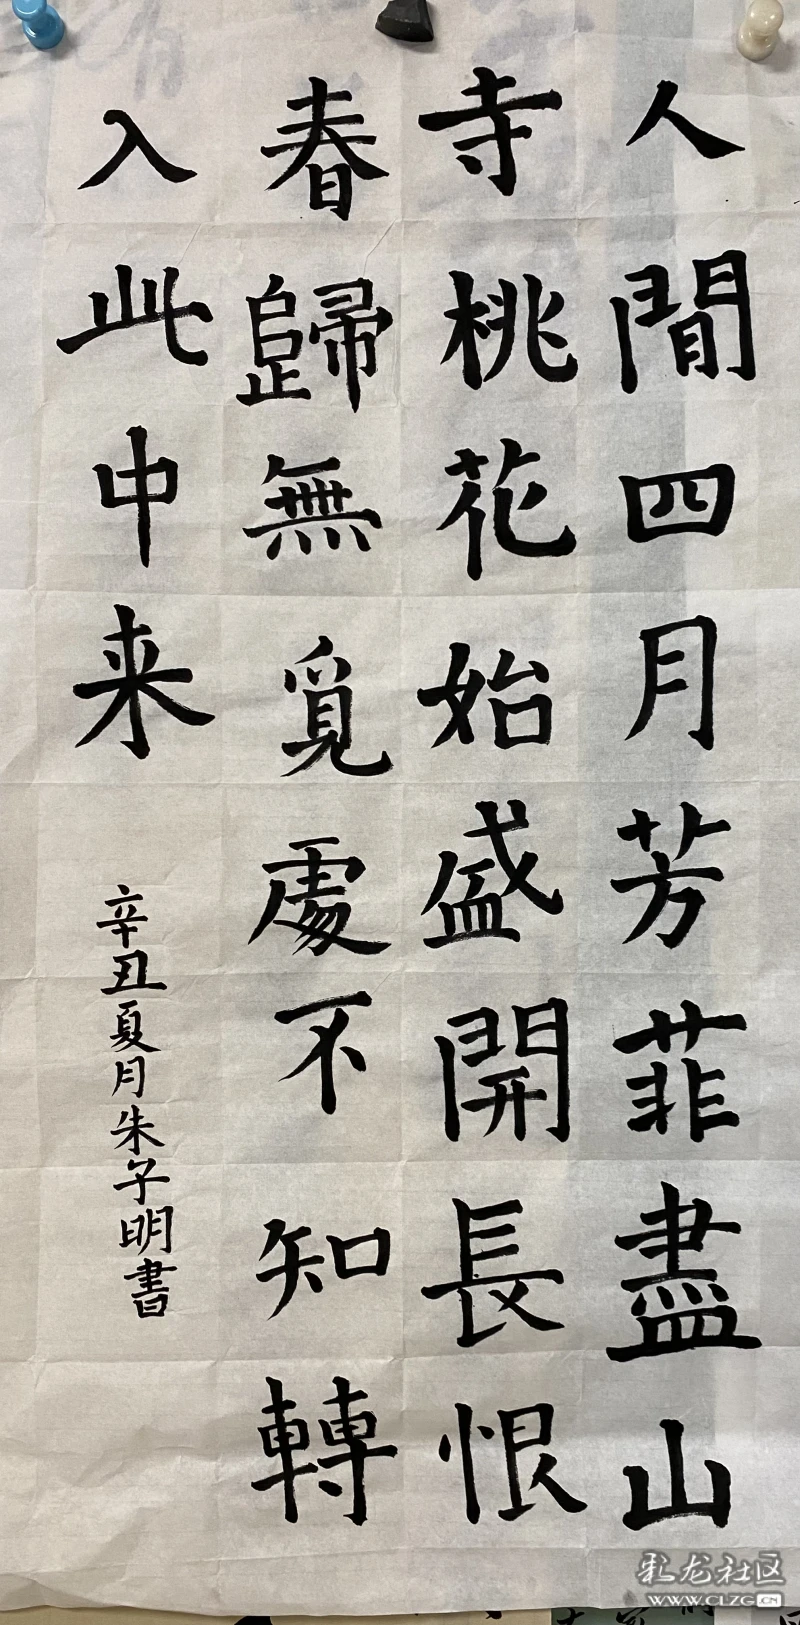 人間四月芳菲盡山
寺桃花始盛開長恨
春歸無覓處不知轉
入此中来
辛丑夏月朱子明書
彩龙社区
WWW.CLZG.CN